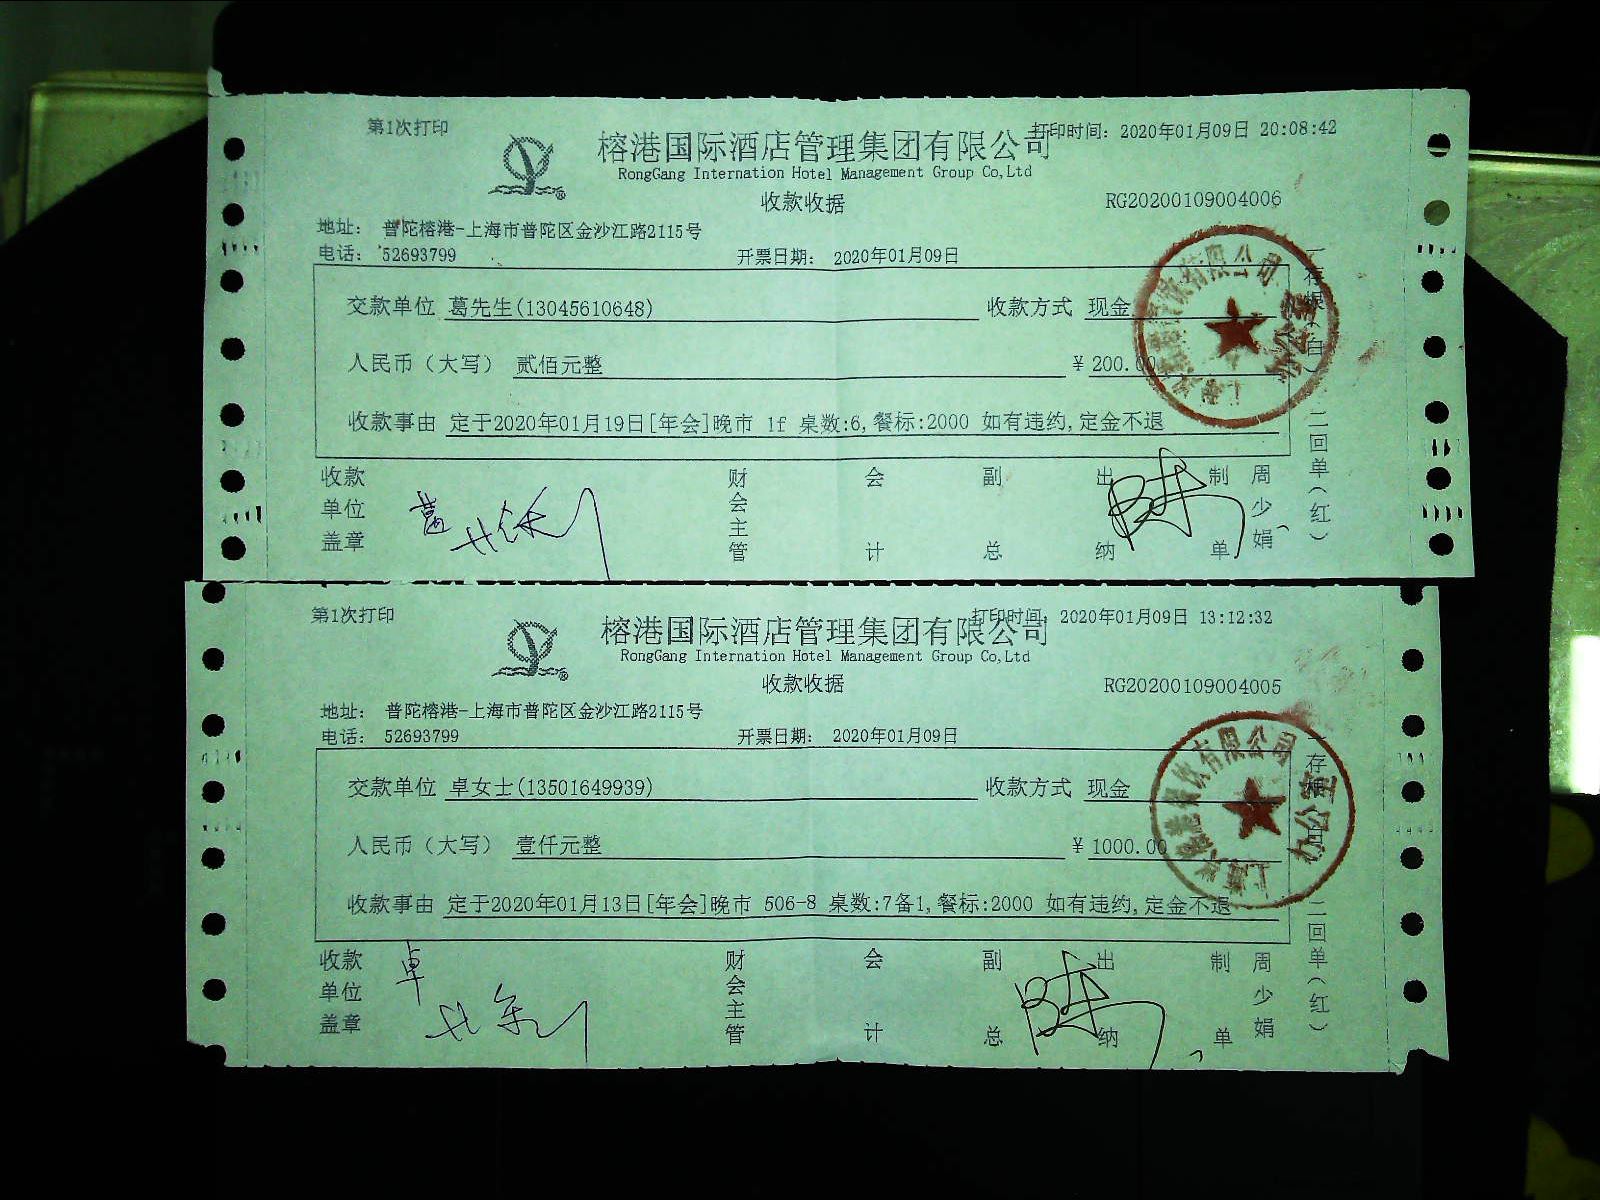 第1次打印
打印时间: 2020年01月09日 20:08:42
榕港国际酒店管理集团有限公司
RongGang Internation Hotel Management Group Co,Ltd
收款收据
RG20200109004006
地址: 普陀榕港-上海市普陀区金沙江路2115号
电话: 52693799
开票日期: 2020年01月09日
交款单位 葛先生(13045610648) 收款方式 现金
人民币（大写） 贰佰元整 ¥ 200.00
收款事由 定于2020年01月19日[年会]晚市 1f 桌数:6,餐标:2000 如有违约,定金不退
收款单位盖章 财会主管 会计 副总 出纳 制单 周少娟
一存根(白) 二回单(红)
有限公司
第1次打印
打印时间: 2020年01月09日 13:12:32
榕港国际酒店管理集团有限公司
RongGang Internation Hotel Management Group Co,Ltd
收款收据
RG20200109004005
地址: 普陀榕港-上海市普陀区金沙江路2115号
电话: 52693799
开票日期: 2020年01月09日
交款单位 卓女士(13501649939) 收款方式 现金
人民币（大写） 壹仟元整 ¥ 1000.00
收款事由 定于2020年01月13日[年会]晚市 506-8 桌数:7备1,餐标:2000 如有违约,定金不退
收款单位盖章 卓 财会主管 会计 副总 出纳 制单 周少娟
一存根(白) 二回单(红)
餐饮有限公司